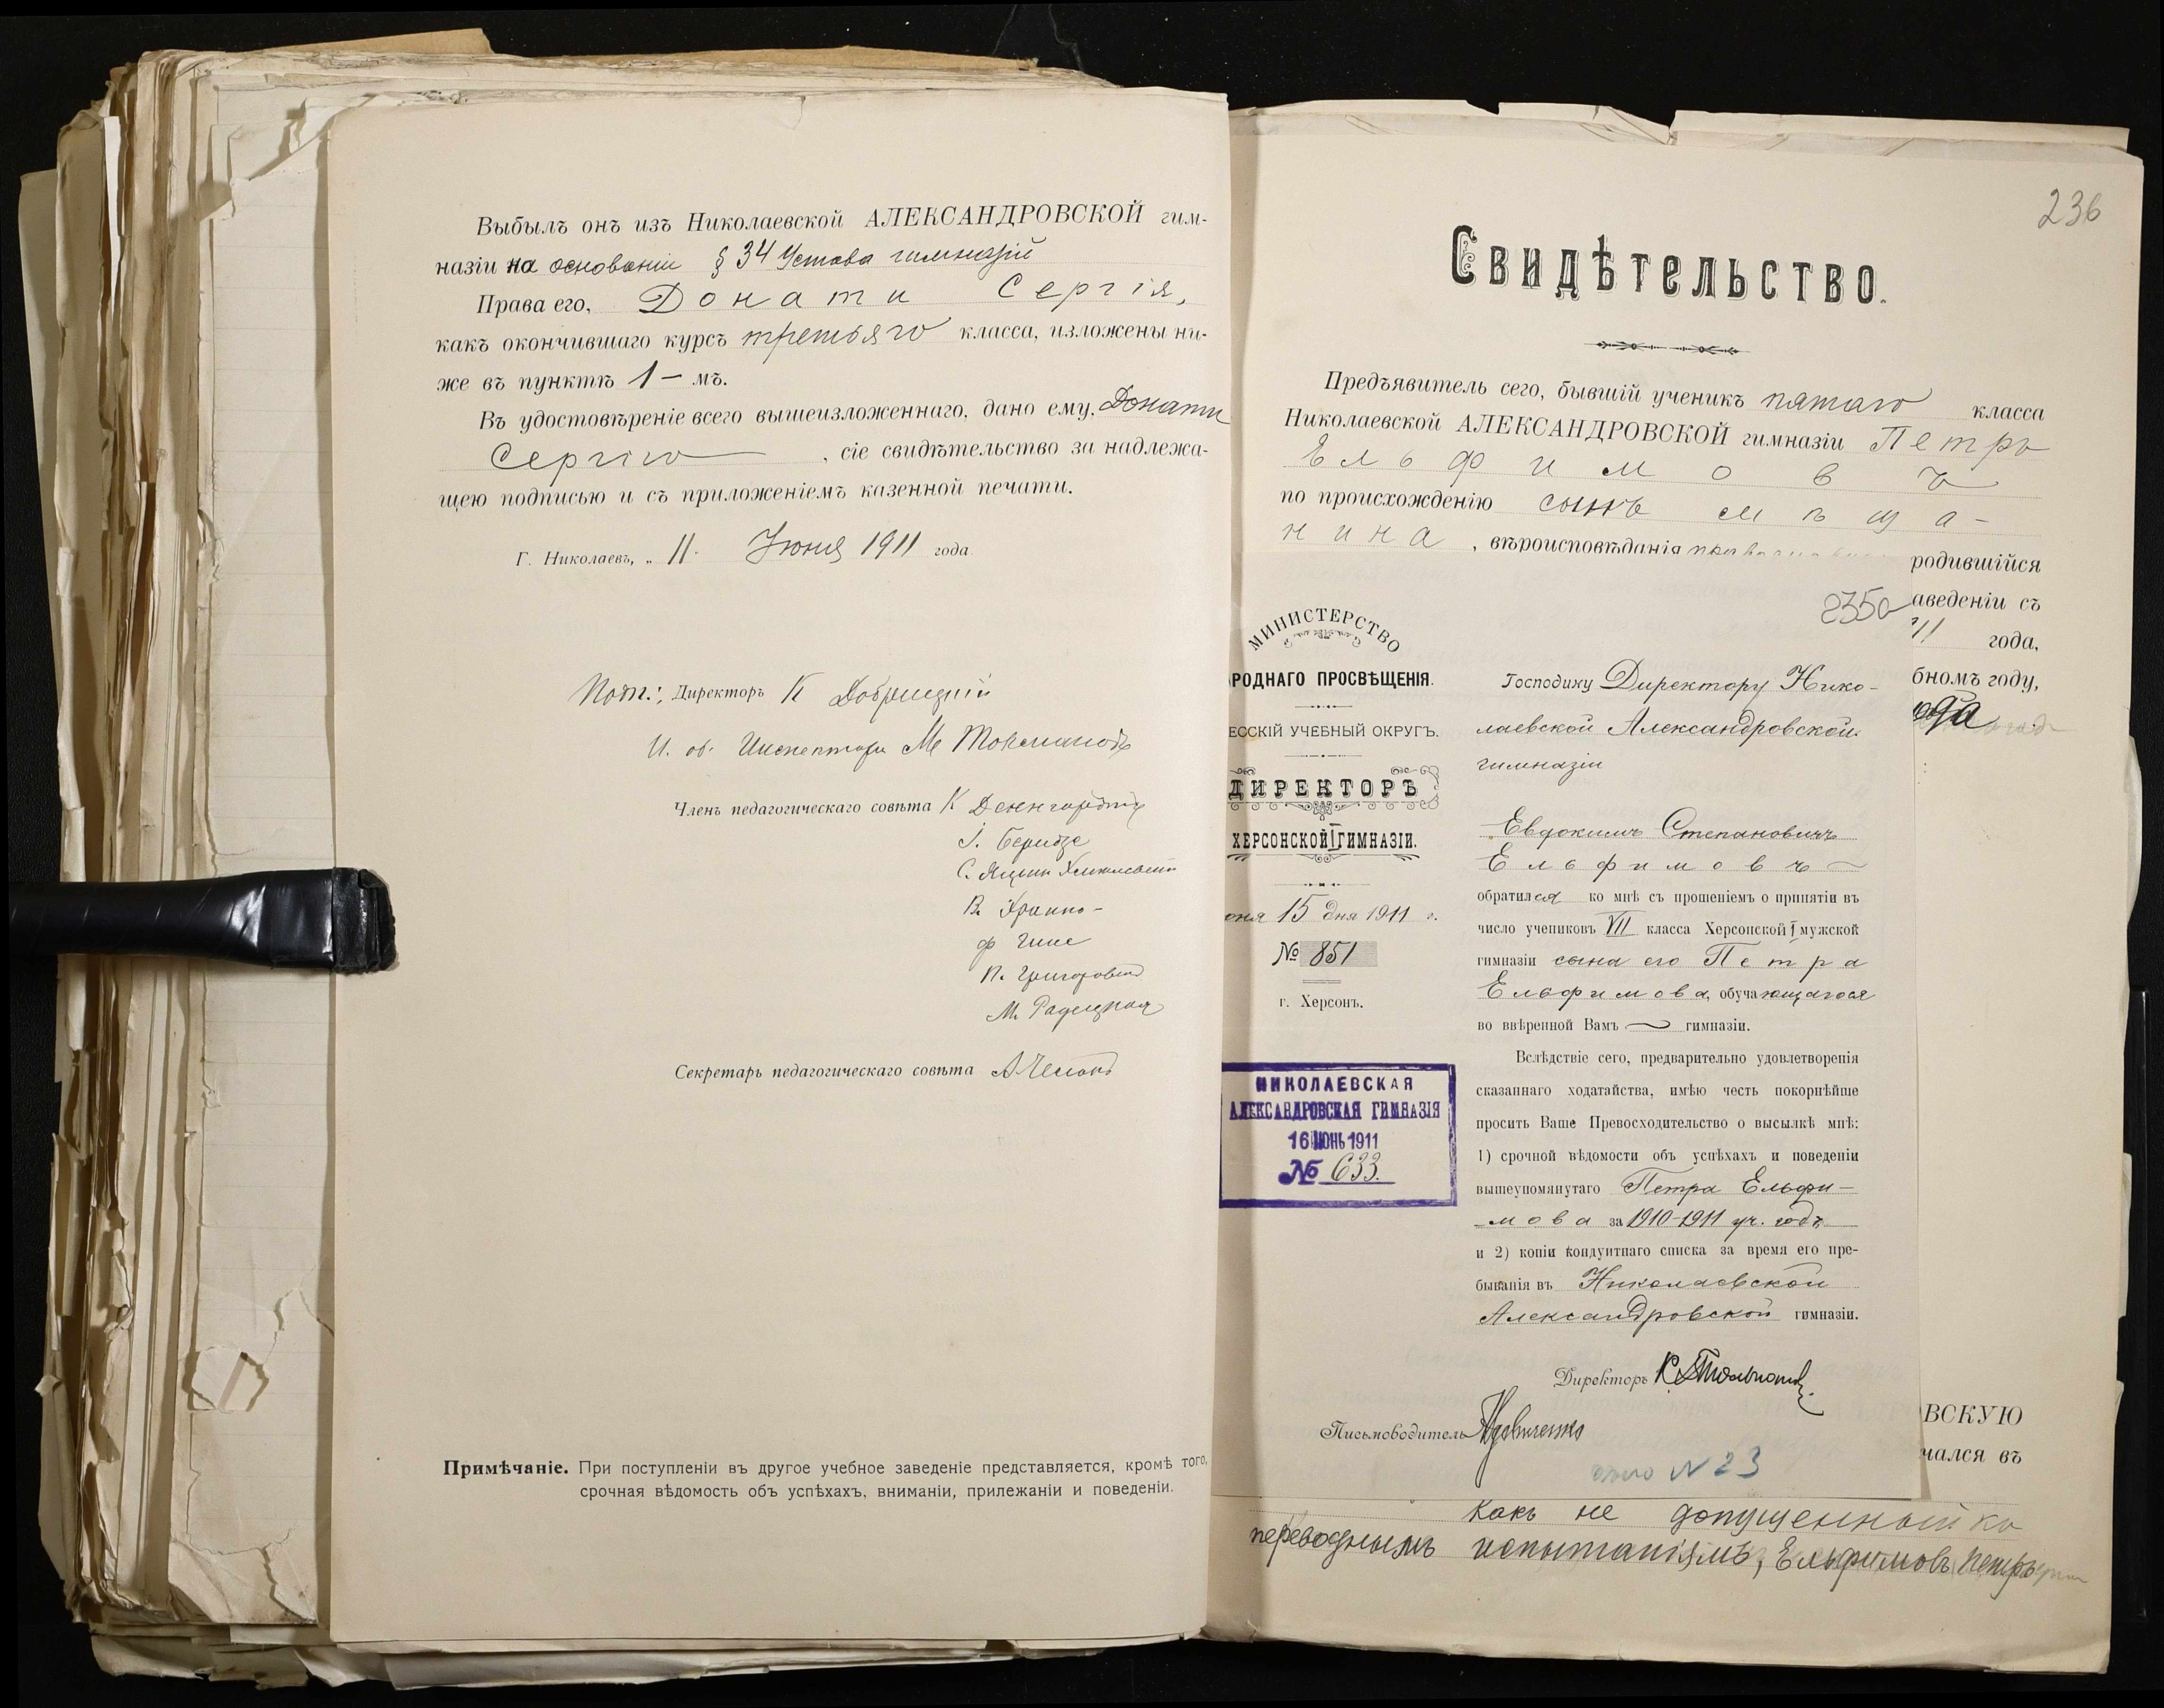 Выбылъ онъ изъ Николаевской АЛЕКСАНДРОВСКОЙ гим-
назіи на основаніи § 34 Устава гимназій
Права его, Донати Сергія,
какъ окончившаго курсъ третьяго класса, изложены ни-
же въ пунктѣ 1 – мъ.
Въ удостовѣреніе всего вышеизложеннаго, дано ему, Донати
Сергію, сіе свидѣтельство за надлежа-
щею подписью и съ приложеніемъ казенной печати.
Г. Николаевъ, „ 11. Іюня 1911 года
Подп.: Директоръ К Добрицкій
И. об. Инспектора М
Членъ педагогическаго совѣта К
І. Беридзе
С.
В.
ф Гине
П. Григоровій
М. Радецкая
Секретарь педагогическаго совѣта А
Примѣчаніе. При поступленіи въ другое учебное заведеніе представляется, кромѣ того,
срочная вѣдомость объ успѣхахъ, вниманіи, прилежаніи и поведеніи.
236
Свидѣтельство.
Предъявитель сего, бывшій ученикъ пятаго класса
Николаевской АЛЕКСАНДРОВСКОЙ гимназіи Петръ
Ельфимовъ
по происхожденію сынъ мѣща-
нина, вѣроисповѣданія православнаго
родившійся
аведеніи съ
11 года,
бномъ году,
года
235а
МИНИСТЕРСТВО
РОДНАГО ПРОСВѢЩЕНІЯ.
ЕССКІЙ УЧЕБНЫЙ ОКРУГЪ.
ДИРЕКТОРЪ
ХЕРСОНСКОЙ I ГИМНАЗІИ.
юня 15 дня 1911 г.
№ 851
г. Херсонъ.
НИКОЛАЕВСКАЯ
АЛЕКСАНДРОВСКАЯ ГИМНАЗІЯ
16 ІЮНЬ 1911
№ 633.
Господину Директору Нико-
лаевской Александровской
гимназіи
Евдокимъ Степановичъ
Ельфимовъ
обратился ко мнѣ съ прошеніемъ о принятіи въ
число учениковъ VII класса Херсонской I мужской
гимназіи сына его Петра
Ельфимова, обучающагося
во ввѣренной Вамъ гимназіи.
Вслѣдствіе сего, предварительно удовлетворенія
сказаннаго ходатайства, имѣю честь покорнѣйше
просить Ваше Превосходительство о высылкѣ мнѣ:
1) срочной вѣдомости объ успѣхахъ и поведеніи
вышеупомянутаго Петра Ельфи-
мова за 1910-1911 уч. годъ
и 2) копіи кондуитнаго списка за время его пре-
быванія въ Николаевской
Александровской гимназіи.
Директоръ
Письмоводитель
дѣло N 23
ВСКУЮ
чался въ
какъ не допущенный къ
переводнымъ испытаніямъ, Ельфимовъ Петръ